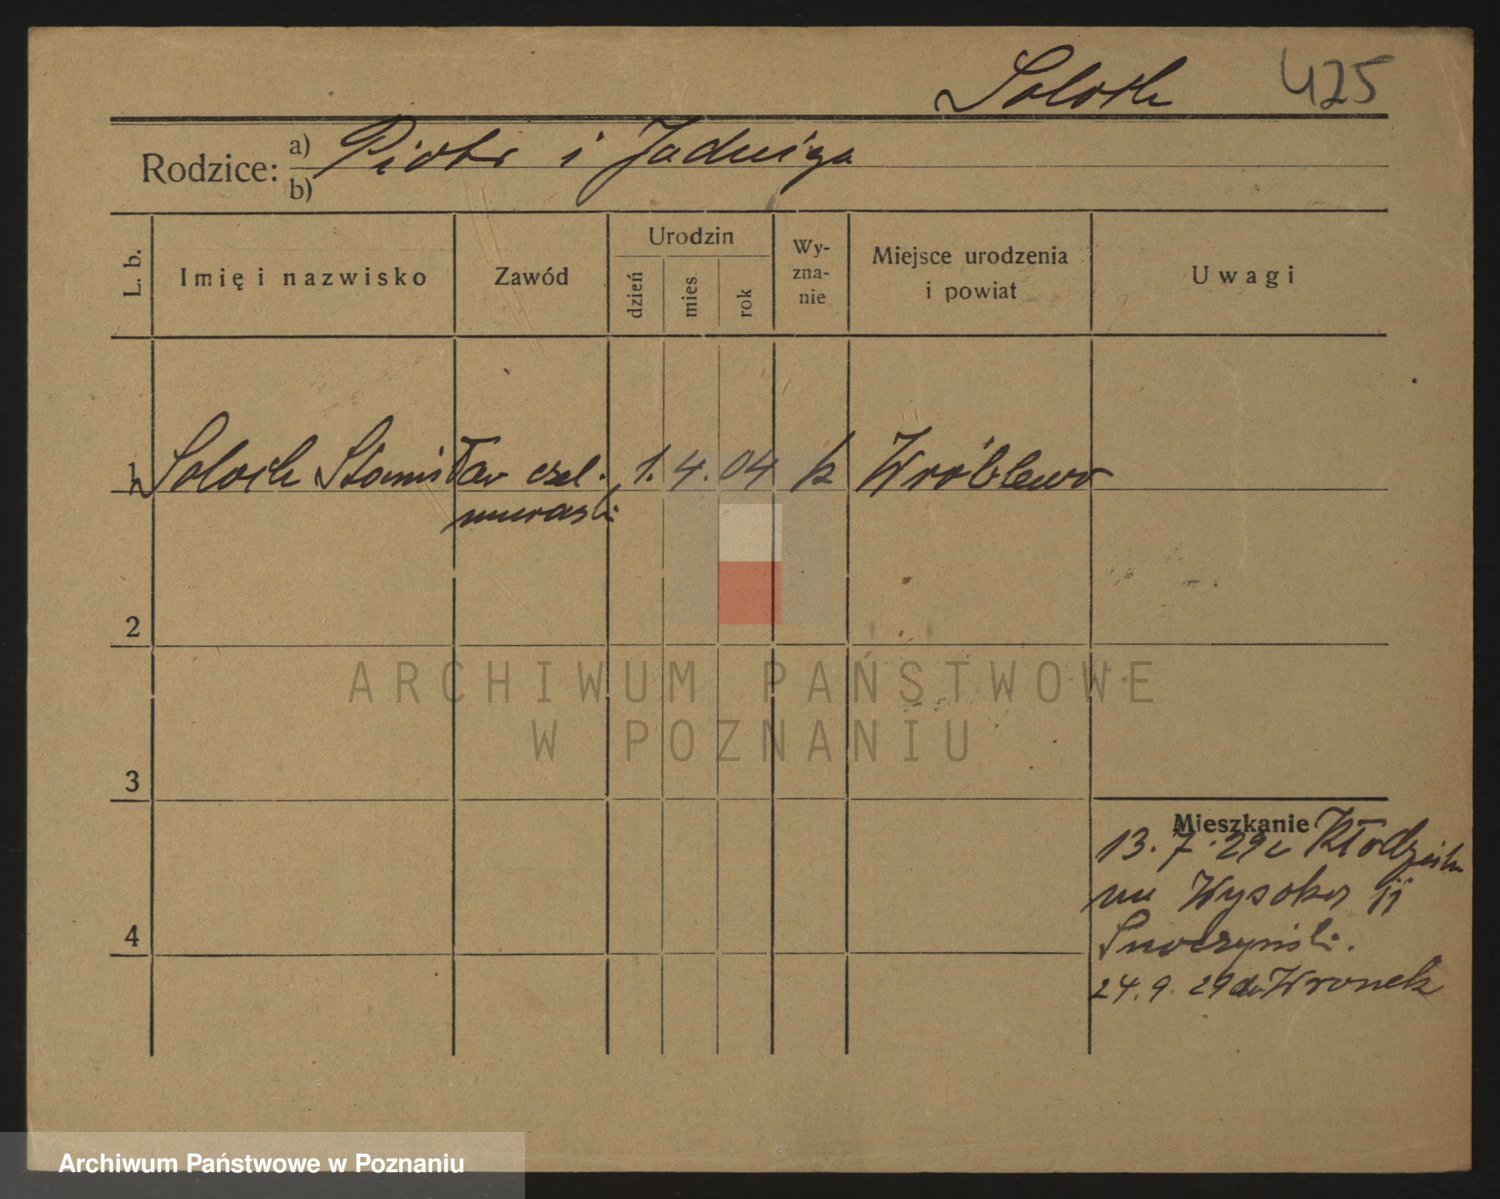 Soloch 425
Rodzice: a) Piotr i Jadwiga
b)
L. b.
Imię i nazwisko
Zawód
Urodzin
dzień
mies.
rok
Wy-
zna-
nie
Miejsce urodzenia
i powiat
Uwagi
1 Soloch Stanisław czel. 1. 4. 04 k Wróblewo
murarski
2
3
4
Mieszkanie
13. 7. 29 z
Wysoka 11
24. 9. 29 do Wronek
ARCHIWUM PAŃSTWOWE
W POZNANIU
Archiwum Państwowe w Poznaniu